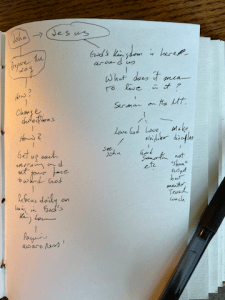 John → Jesus
prepare the
way
How?
Change
directions
How?
Get up each
morning and
set your face
toward God
Focus daily on
living in God's
Kingdom
Prayerful
awareness
God's Kingdom is here
around us
What does it mean
to live in it?
Sermon on the Mt.
Love God
see
John
Love
Neighbor
Good
Samaritan
etc
Make
Disciples
not
but
mentor,
Teach,
coach